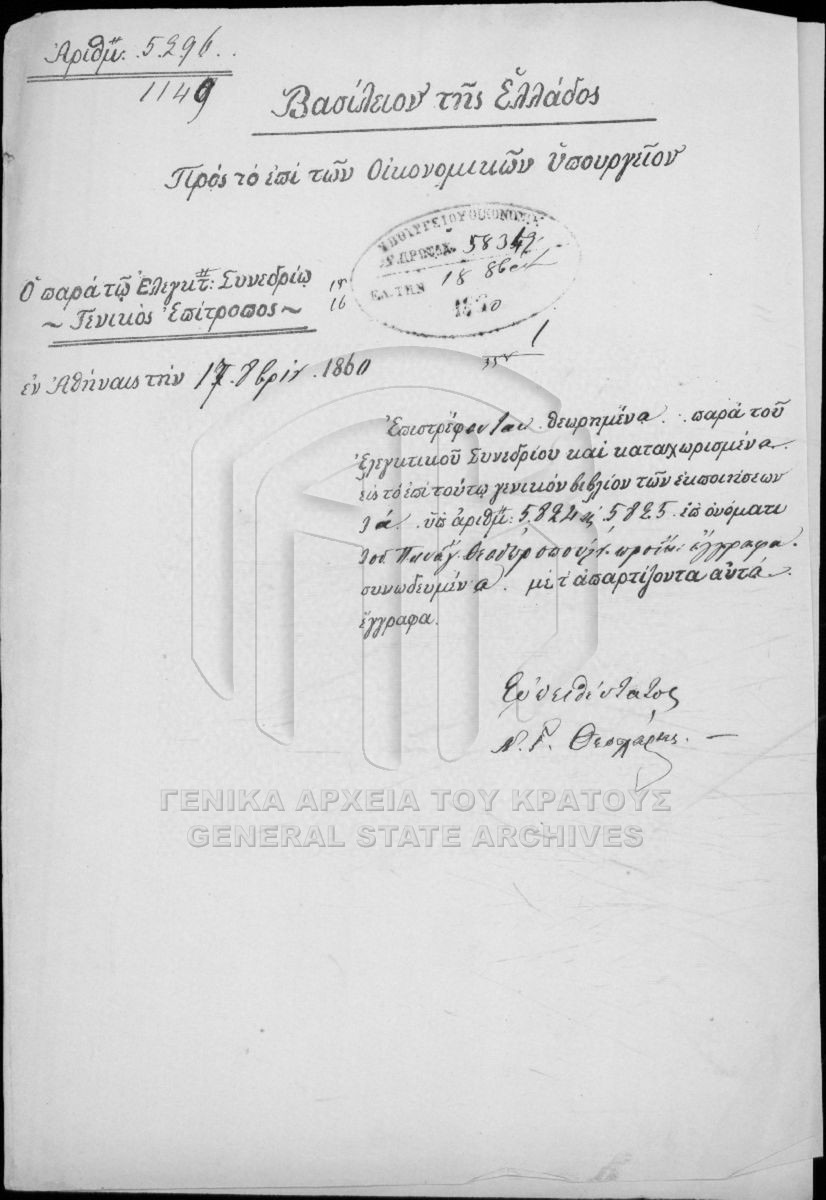 Ἀριθμ: 5296.
1149
Βασίλειον τῆς Ἑλλάδος
Πρός τό ἐπί τῶν Οἰκονομικῶν Ὑπουργεῖον
ΥΠΟΥΡΓΕΙΟΥ ΟΙΚΟΝΟΜΙΚ
ΠΡΩΤΟΚ. 58342
ΕΛ. ΤΗΝ 18 8βρ
1860
Ὁ παρά τῷ Ἐλεγκτ: Συνεδρίῳ
~ Γενικὸς Ἐπίτροπος ~
18
16
1
358
ἐν Ἀθήναις τήν 17 8βρίου 1860
Ἐπιστρέφονται θεωρημένα παρά τοῦ
Ἐλεγκτικοῦ Συνεδρίου καί καταχωρισμένα
εἰς τό ἐπί τούτῳ γενικόν βιβλίον τῶν ἐκποιήσεων
τά ὑπ ἀριθμ: 5824 5825 ἐπ ὀνόματι
τοῦ Παναγ. Θεοδωροπούλου ἔγγραφα
συνωδευμένα μέ τ' ἀπαρτίζοντα αὐτά
ἔγγραφα.
Εὐπειθέστατος
Ν. Γ.
ΓΕΝΙΚΑ ΑΡΧΕΙΑ ΤΟΥ ΚΡΑΤΟΥΣ
GENERAL STATE ARCHIVES